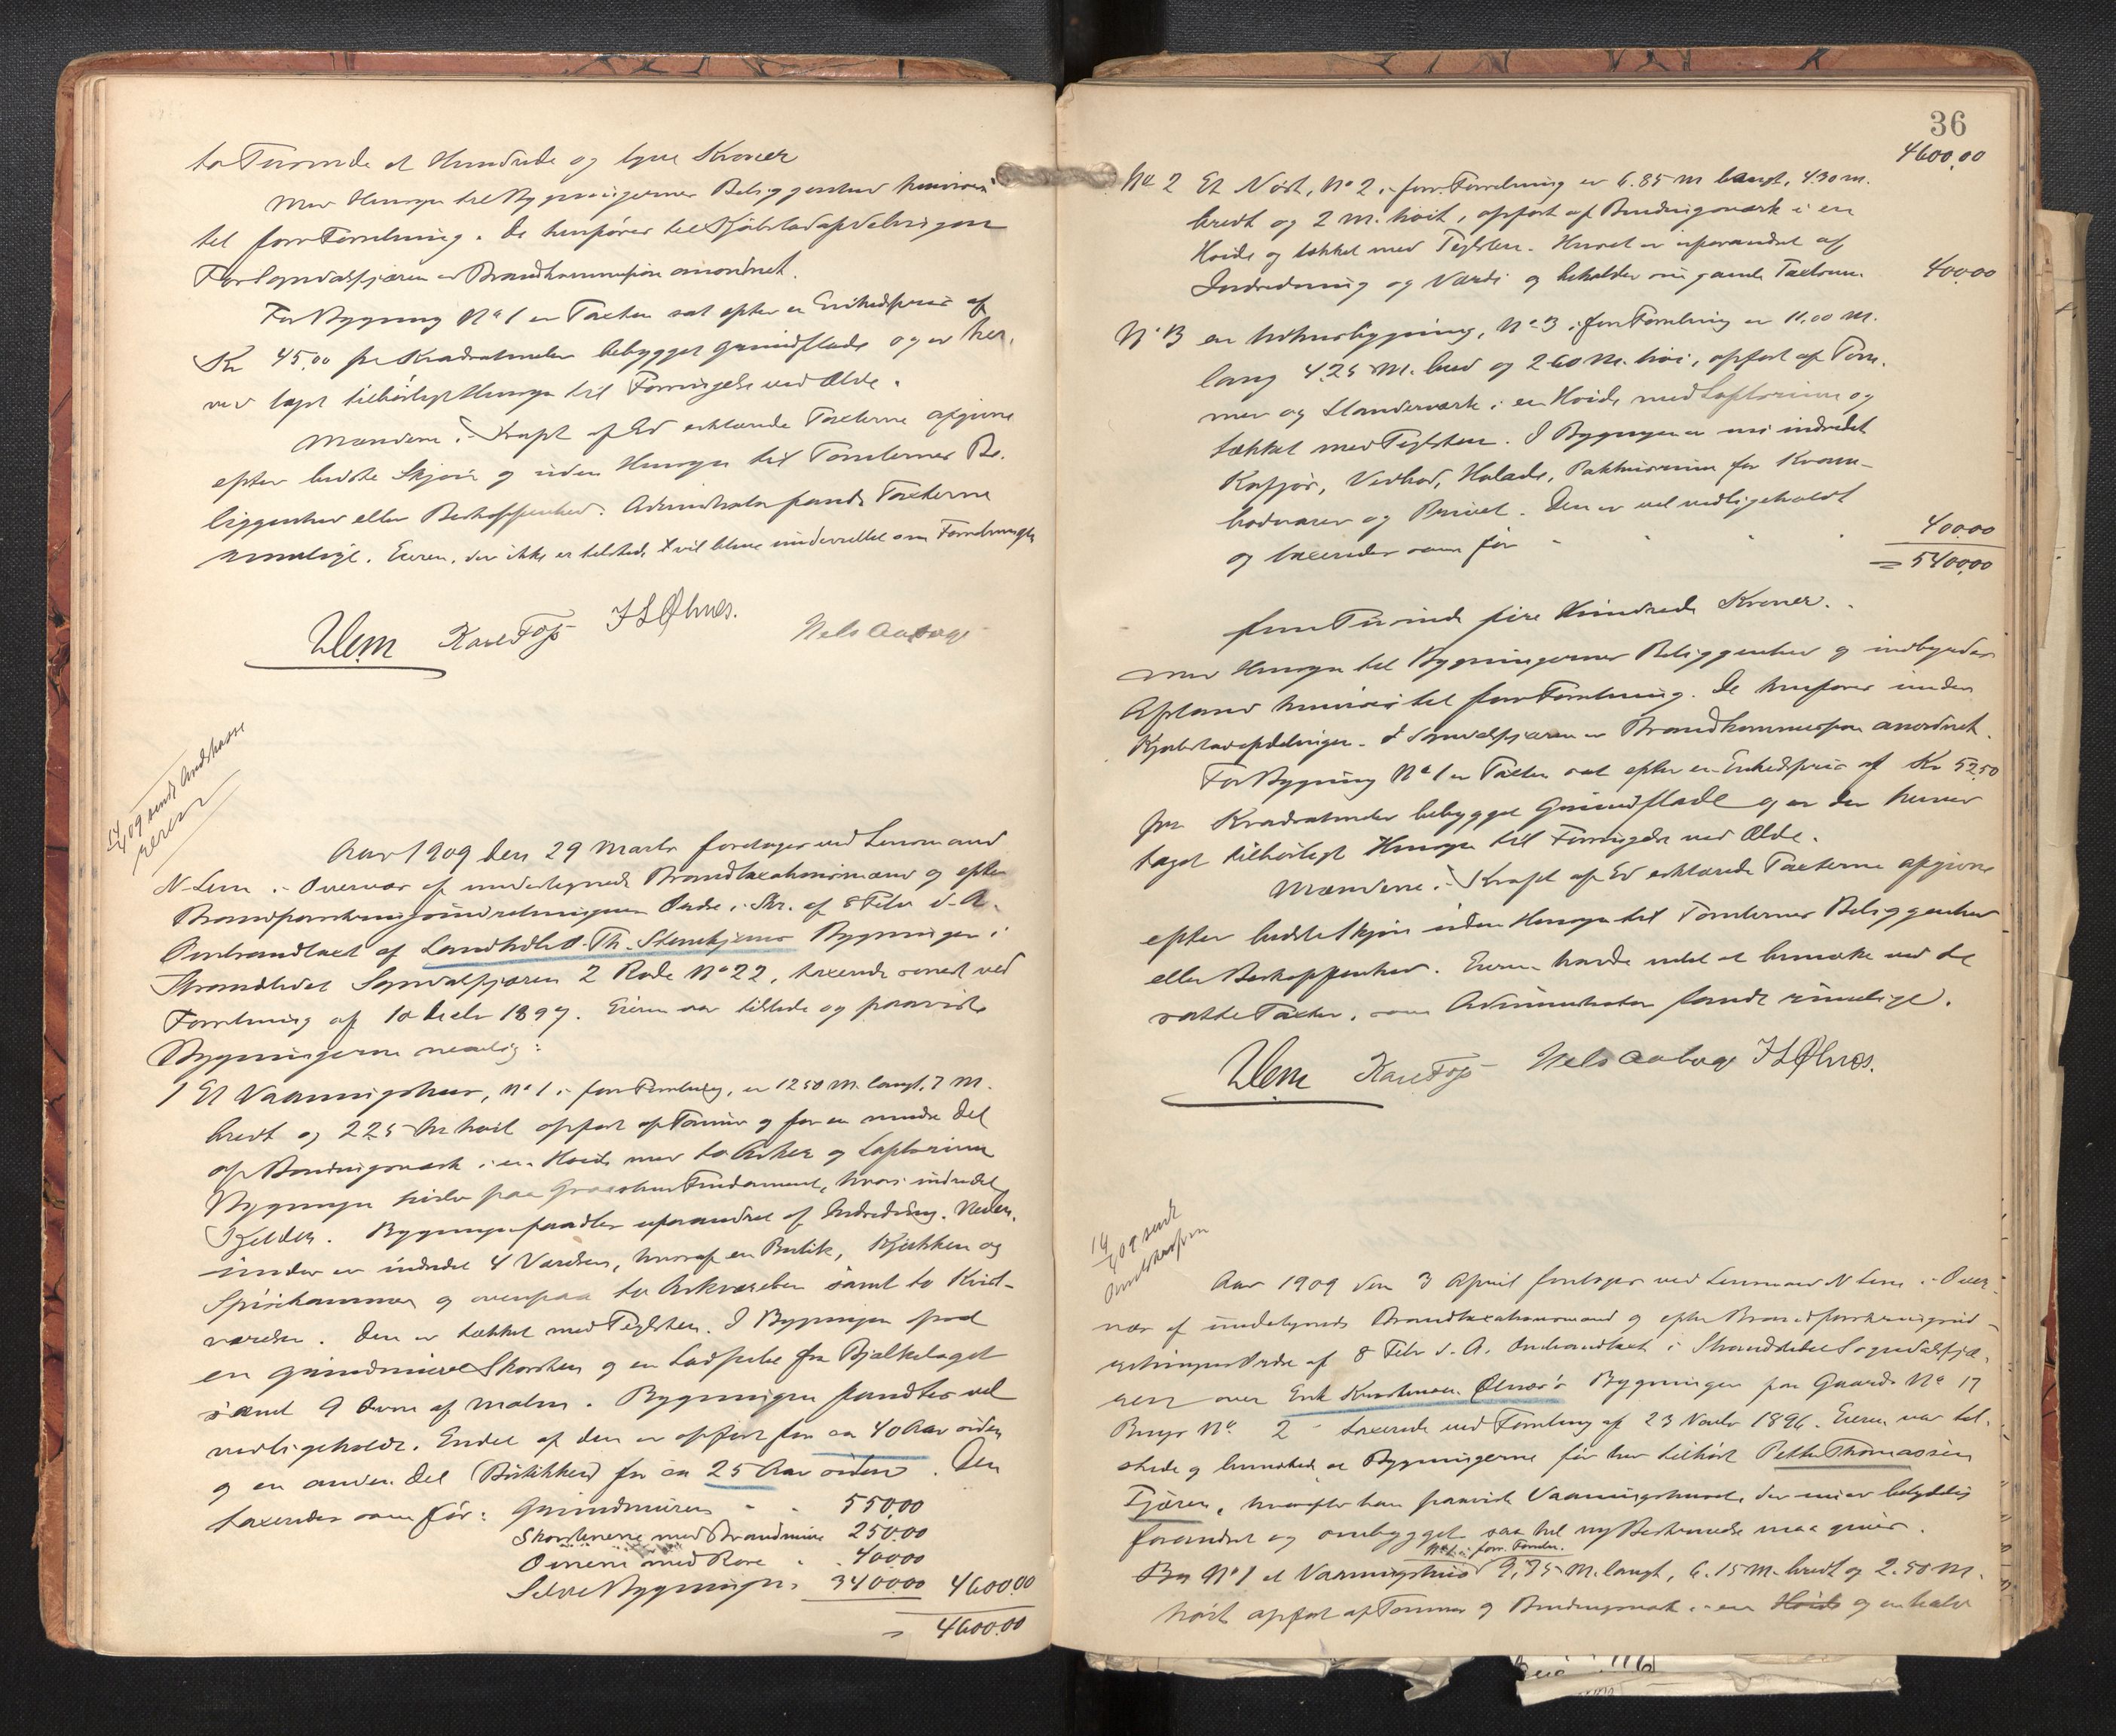 to Tusinde et Hundrede og tyve Kroner
Med Hensyn til Bygningernes Beliggenhed henvises
til forr. Forretning. De henføres til Kjøbstadafdelingen
For Sogndalsfjæren er Brandkommission anordnet.
For Bygning No 1 er Taxten sat efter en Enhedspris af
Kr 45.00 pr Kvadratmeter bebygget Grundflade og er her-
ved taget tilbørligt Hensyn til Forringelse ved Ælde.
Mændene i Kraft af Ed erklærede Taxterne afgivne
efter bedste Skjøn og uden Hensyn til Tomternes Be-
liggenhed eller Beskaffenhed. Administrator fandt Taxterne
rimelige. Eieren, der ikke er tilstede, vil blive underrettet om Forretningen
NLem Karl Fop I L Ølnes. Nels Aaboge
14/4 09 sendt Brandkasse
Aar 1909 den 29 Marts foretoges ved Lensmand
N Lem i Overvær af undertegnede Brandtaxationsmænd og efter
Brandforsikringsindretningens Ordre i Skr. af 8 Febr d. A.
Ombrandtaxt af Landhdl. O. Th. Stenehjems Bygninger i
Strandstedet Sogndalsfjæren 2 Rode No 22, taxerede senest ved
Forretning af 10 Decbr 1897. Eieren var tilstede og paaviste
Bygningerne nemlig:
1 Et Vaaningshus, No 1 i forr. Forretning, er 12.50 M. langt, 7 M.
bredt og 2.25 M høit opført af Tømmer og for en mindre Del
af Bindingsværk i en Høide med to Arker og Loftsrum
Bygningen hviler paa Graastens Fundament, hvori indredet
Kjelder. Bygningen fandtes uforandret af Indredning. Neden-
under er indredet 4 Værelser, hvoraf en Butik, Kjøkken og
Spisekammer og ovenpaa to Arkværelser samt to Kvist-
værelser. Den er tækket med Teglsten. I Bygningen fandtes
en grundmuret Skorsten og en Ladpibe fra Bjælkelaget
samt 9 Ovne af Malm. Bygningen fandtes vel
vedligeholdt. Endel af den er opført for ca 40 Aar siden
og en anden Del (Butikken) for ca 25 Aar siden. Den
taxeredes som før: Grundmuren " " 550.00
Skorstenene med Brandmure 250.00
Ovnene med Rør " " 400.00
Selve Bygningen 3400.00 4600.00
= 4600.00
36
4600.00
No 2 Et Nøst, No 2 i forr. Forretning er 6.85 M langt, 4.30 M.
bredt og 2 M. høit, opført af Bindingsværk i en
Høide og tækket med Teglsten. Huset er uforandret af
Indredning og Værdi og beholder sin gamle Taxtsum 400.00
No 3 en Udhusbygning, No 3 i forr. Forretning er 11.00 M.
lang 4.25 M. bred og 2.60 M. høi, opført af Tøm-
mer og Standerværk i en Høide med Loftsrum og
tækket med Teglsten. I Bygningen er nu indredet
Kufjøs, Vedbod, Hølade, Pakhusrum for Kram-
bodvarer og Privet. Den er vel vedligeholdt
og taxeredes som før " " " 400.00
= 5400.00
fem Tusinde fire Hundrede Kroner.
Med Hensyn til Bygningernes Beliggenhed og indbyrdes
Afstand henvises til forr. Forretning. De henføres under
Kjøbstadafdelingen. I Sogndalsfjæren er Brandkommission anordnet.
For Bygning No 1 er Taxten sat efter en Enhedspris af Kr 52.50
pr Kvadratmeter bebygget Grundflade og er der herved
taget tilbørligt Hensyn til Forringelse ved Ælde.
Mændene i Kraft af Ed erklærede Taxterne afgivne
efter bedste Skjøn uden Hensyn til Tomternes Beliggenhed
eller Beskaffenhed. Eieren havde intet at bemærke ved de
satte Taxter, som Administrator fandt rimelige.
NLem Karl Fop Nels Aaboge I L Ølnes.
14/4 09 sendt
Brandkassen
Aar 1909 den 3 April foretoges ved Lensmand N Lem i Over-
vær af undertegnede Brandtaxationsmænd og efter Brandforsikringsind-
retningens Ordre af 8 Febr d. A. Ombrandtaxt i Strandstedet Sogndalsfjæ-
ren over Erik Kristensen Ølnes's Bygninger paa Gaards No 17
Brugs No 2 taxerede ved Forretning af 23 Novbr 1896. Eieren var til-
stede og bemærkede at Bygningerne før har tilhørt Petter Thomassen
Fjæren, hvorefter han paaviste Vaaningshuset, der nu er betydelig
forandret og ombygget saa hel ny Beskrivelse maa gives.
No 1 i forr. Forretn.
Byg No 1 et Vaaningshus 9.75 M. langt, 6.15 M. bredt og 2.50 M.
høit opført af Tømmer og Bindingsværk i en Høide og en halv